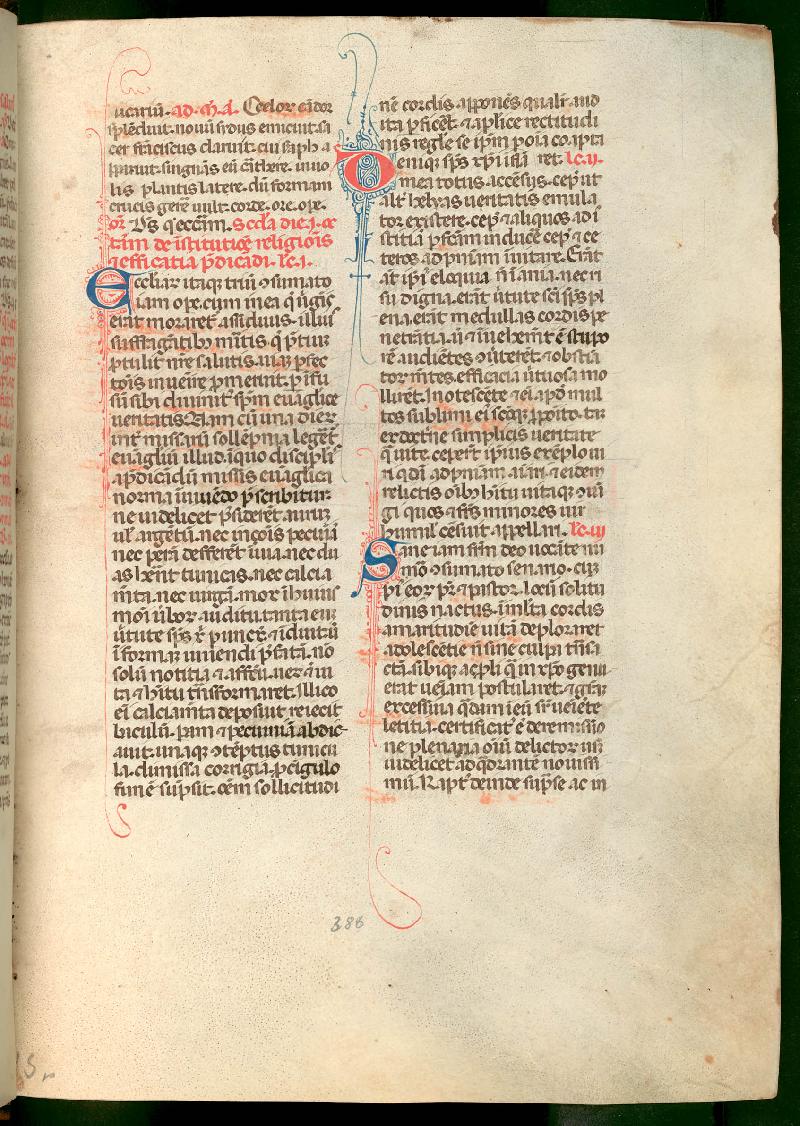 ucariū. ad. m̄. a̅. Celor cādor
splēduit. nouū sydus emicuit. sa
cer frāciscus claruit. cui saph a
pparuit. signās eū cathere. in uo
lis plantis latere. dū formam
crucis gerē uult. corde. ore. ope.
or̄. V̄s q̄ eccam. Scd̄a die. i. de
tam̄ de īstitutōe religiōis
⁊ efficatia p̄dicādi. lc̄. i.
Ecclīar itaq̄ triū ɔsumato
iam ope. cum in ea q̄ uḡis
erat moraret̄ assiduus. illiꝰ
suffragātibꝰ mitis q̄ p̄tiū
p̄tulit nr̄e salutis. uiaz p̄fec
tōis inuēire p̄meruit. p īfu
sū sibi diuinitꝰ sp̄m euāglice
ueritatis. Nam cū una dier
int̄ missarū sollēpnia leget̄
euāgliū illud. ī quo discipl̄i
ap̄dicādū missis euāglica
norma in uiuēdo p̄scribitur
ne uidelicet p̄sideret̄ aurū
ul̄ argētū. nec īzōis pecuīā
nec perā defferēt ī uia. nec du
as hēnt tunicas. nec calcia
mīta. nec uirgā. mox ih̄uiꝰ
mōi ūbor auditu. tanta eiꝰ
ūtute sps x̄ p̄unct̄ ⁊ īduitū
īformaz uiuendi p̄fatā. nō
solū notitia ⁊ affcū. uer̄ ⁊ ui
ta ⁊ hītu tn̄sformaret. Illico
ei calciam̄ta deposuit reiecit
biculū. pam ⁊ pecuniā abdic
auit. unaq̄ ɔtēptus tunicu
la. dimissa corrigia. p cīgulo
funē sūpsit. oēm sollicitudi
nē cordis apponēs qualit̄ aud
ita p̄ficet̄ ⁊ ap̄lice rectitudi
nis regl̄e se ip̄m p oīa coapta
Deniq̄ sp̄s xp̄i ifla ret. lc̄. ii.
mea totus accēsus. cep̄ ut
alt̄ helyas ueritatis emula
tor existere. cep̄ ⁊ aliquos ad ī
stitia p̄fcam inducē. cep̄ ⁊ ce
teros ad pn̄iam inuitare. Erāt
āt ip̄i eloquia n̄ īania. nec ri
su digna. erāt ūtute sc̄i sp̄s pl
ena. erāt medullas cordis pe
netrātia. ...
rē audiētes ɔūteret̄. ⁊ obstia
tor mētes. efficacia ūtuosa mo
lliret̄. Inotescēte ⁊ ei apd̄ mul
tos sublimi ei sc̄oq̄ p̄posito. tā
er doctne simplicis ueritate
q̄ uite. cepert̄ ip̄ius exēplo ui
ri q̄dā ad pn̄iam aīari. ⁊ eidem
relictis oībꝰ hītu uitaq̄ ɔiū
gi quos ⁊ frs̄ minores uir
humil̄ cēsuit appellari. lc̄. iii
Sane iam frm̄ deo uocāte nu
mō ɔsumato senario. cuz
pi eor̄ pr̄ ⁊ pastor. locū solitu
dinis nactus. ī mlta cordis
amaritudīe uitā deploraret
adolescētie n̄ sine culpa tn̄sa
ctā. sibiq̄ ac p̄li q̄ in xp̄o genu
erat ueniam postularet ⁊ grāz
excessiua q̄dam iēū sr̄ueiēte
letitia. certificat̄ ē de remissio
ne plenaria oīū delictor̄ usq̄
uidelicet ad q̄drante nouissi
mū. Rapt̄ deinde sup̄ se ac in
386